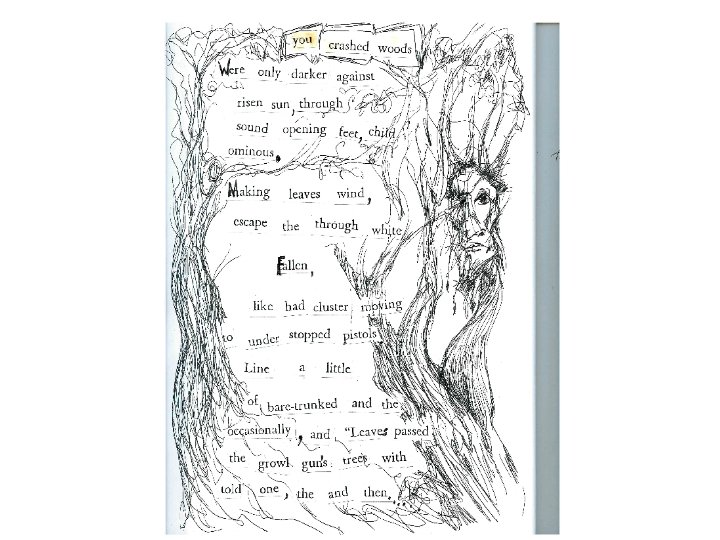 you crashed woods
Were only darker against
risen sun, through
sound opening feet, child
ominous.
Making leaves wind,
escape the through white
Fallen,
like bad cluster moving
to under stopped pistols
Line a little
of bare-trunked and the
occasionally, and "Leaves passed
the growl gun's trees with
told one, the and then...